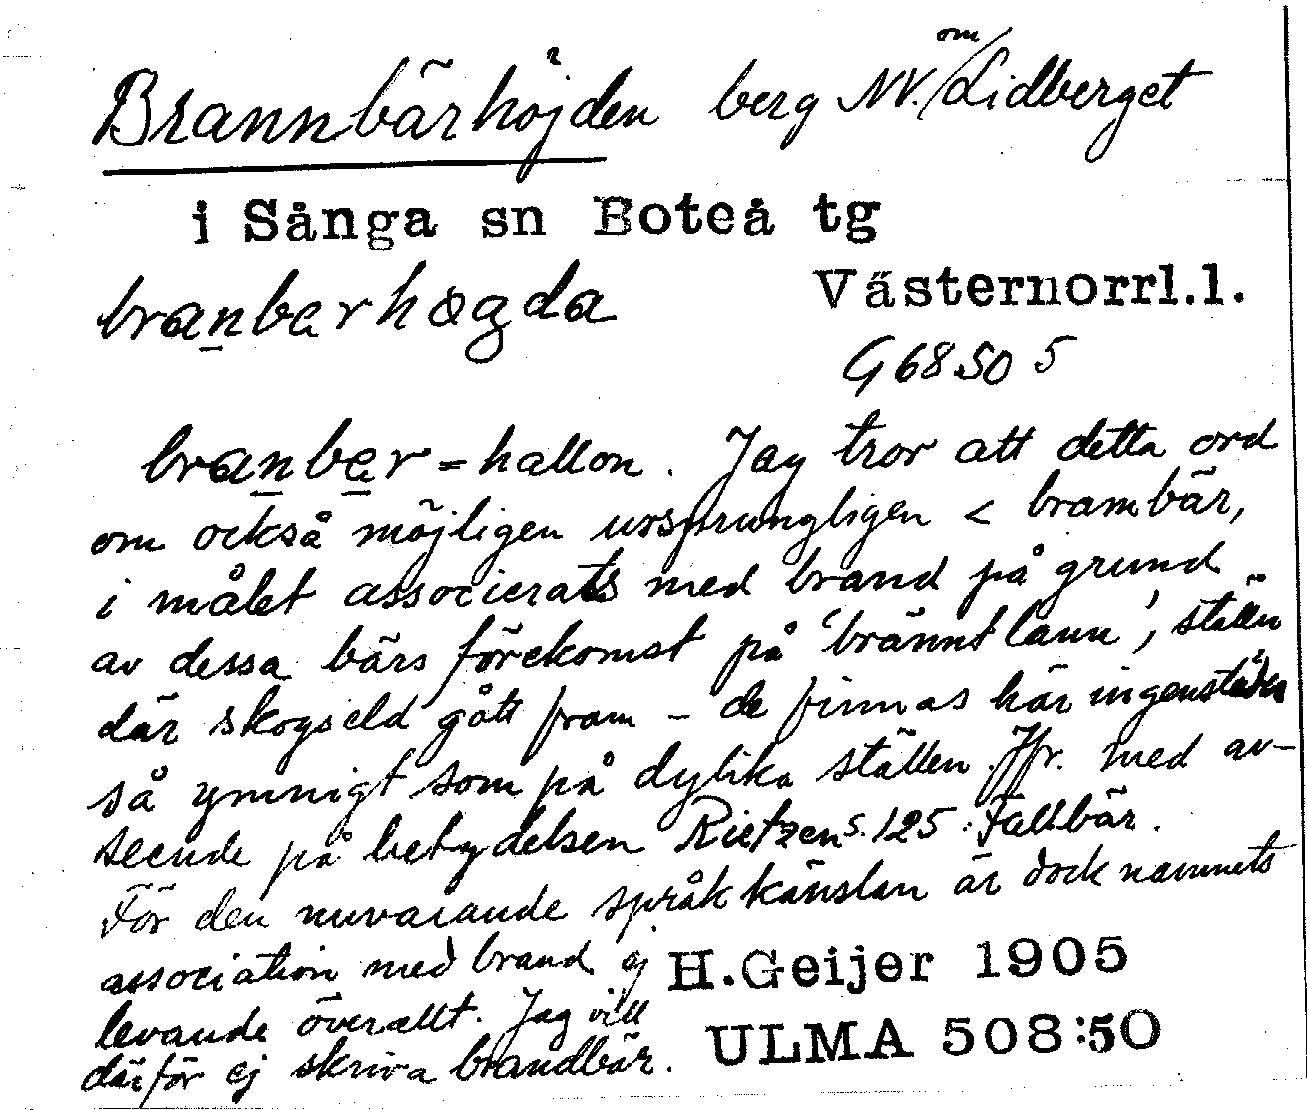 Brannbärhöjden berg NV. om Lidberget
i Sånga sn Boteå tg
Västernorrl.l.
branberhøgda
G 68 50 5
branber = hallon. Jag tror att detta ord
om också möjligen ursprungligen < brambär,
i målet associerats med brand på grund
av dessa bärs förekomst på 'brännt lann', ställen
där skogseld gått fram – de finnas här ingenstädes
så ymnigt som på dylika ställen. Jfr. med av-
seende på betydelsen Rietzen s. 125 : Fallbär.
För den nuvarande språkkänslan är dock namnets
association med brand ej
levande överallt. Jag vill
därför ej skriva brandbär.
H.Geijer 1905
ULMA 508:50